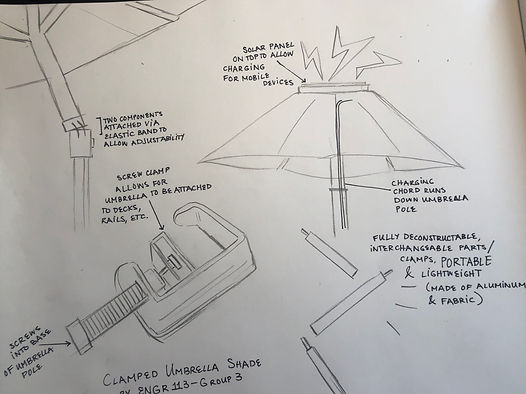 SOLAR PANEL
ON TOP TO ALLOW
CHARGING
FOR MOBILE
DEVICES
TWO COMPONENTS
ATTACHED VIA
ELASTIC BAND TO
ALLOW ADJUSTABILITY
SCREW CLAMP
ALLOWS FOR
UMBRELLA TO BE ATTACHED
TO DECKS,
RAILS, ETC.
CHARGING
CHORD RUNS
DOWN UMBRELLA
POLE
FULLY DECONSTRUCTABLE,
INTERCHANGEABLE PARTS/
CLAMPS, PORTABLE
& LIGHTWEIGHT
(MADE OF ALUMINUM
& FABRIC)
SCREWS
INTO BASE
OF UMBRELLA
POLE
CLAMPED UMBRELLA SHADE
BY ENGR 113-GROUP 3